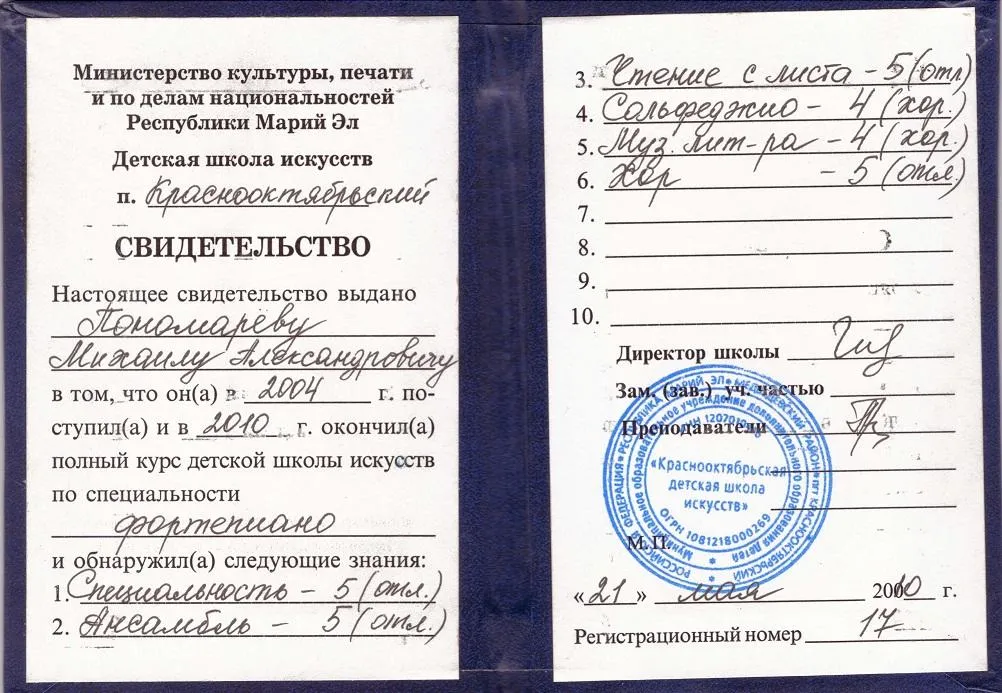 Министерство культуры, печати
и по делам национальностей
Республики Марий Эл
Детская школа искусств
п. Краснооктябрьский
СВИДЕТЕЛЬСТВО
Настоящее свидетельство выдано
Пономарёву
Михаилу Александровичу
в том, что он(а) в 2004 г. по-
ступил(а) и в 2010 г. окончил(а)
полный курс детской школы искусств
по специальности
фортепиано
и обнаружил(а) следующие знания:
1. Специальность - 5 (отл.)
2. Ансамбль - 5 (отл.)
3. Чтение с листа - 5 (отл)
4. Сольфеджио - 4 (хор.)
5. Муз. лит-ра - 4 (хор.)
6. Хор - 5 (отл.)
7.
8.
9.
10.
Директор школы
Зам. (зав.) уч. частью
Преподаватели
М.П.
РОССИЙСКАЯ ФЕДЕРАЦИЯ * РЕСПУБЛИКА МАРИЙ ЭЛ * МЕДВЕДЕВСКИЙ РАЙОН * пгт КРАСНООКТЯБРЬСКИЙ
Муниципальное образовательное учреждение дополнительного образования детей
«Краснооктябрьская
детская школа
искусств»
ОГРН 1081218000269
«21» мая 2010 г.
Регистрационный номер 17